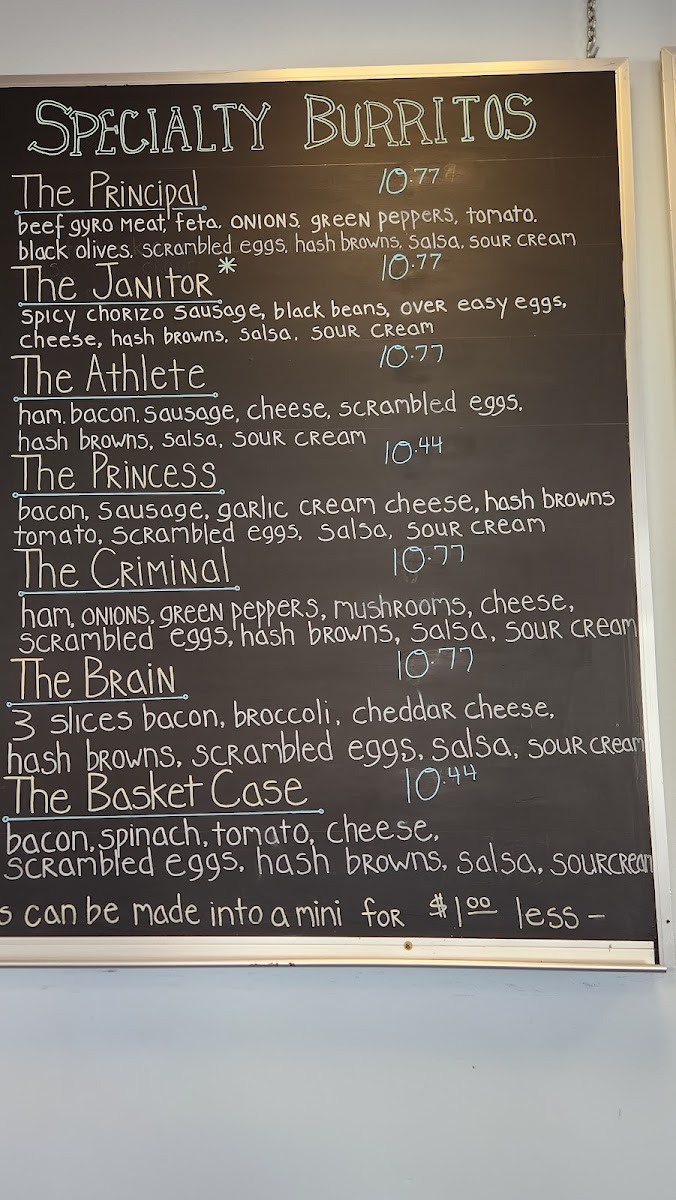 SPECIALTY BURRITOS
The Principal 10.77
beef gyro meat, feta, onions, green peppers, tomato,
black olives, scrambled eggs, hash browns, salsa, sour cream
The Janitor* 10.77
spicy chorizo sausage, black beans, over easy eggs,
cheese, hash browns, salsa, sour cream
The Athlete 10.77
ham, bacon, sausage, cheese, scrambled eggs,
hash browns, salsa, sour cream
The Princess 10.44
bacon, sausage, garlic cream cheese, hash browns
tomato, scrambled eggs, salsa, sour cream
The Criminal 10.77
ham, onions, green peppers, mushrooms, cheese,
scrambled eggs, hash browns, salsa, sour cream
The Brain 10.77
3 slices bacon, broccoli, cheddar cheese,
hash browns, scrambled eggs, salsa, sour cream
The Basket Case 10.44
bacon, spinach, tomato, cheese,
scrambled eggs, hash browns, salsa, sour cream
s can be made into a mini for $1.00 less -